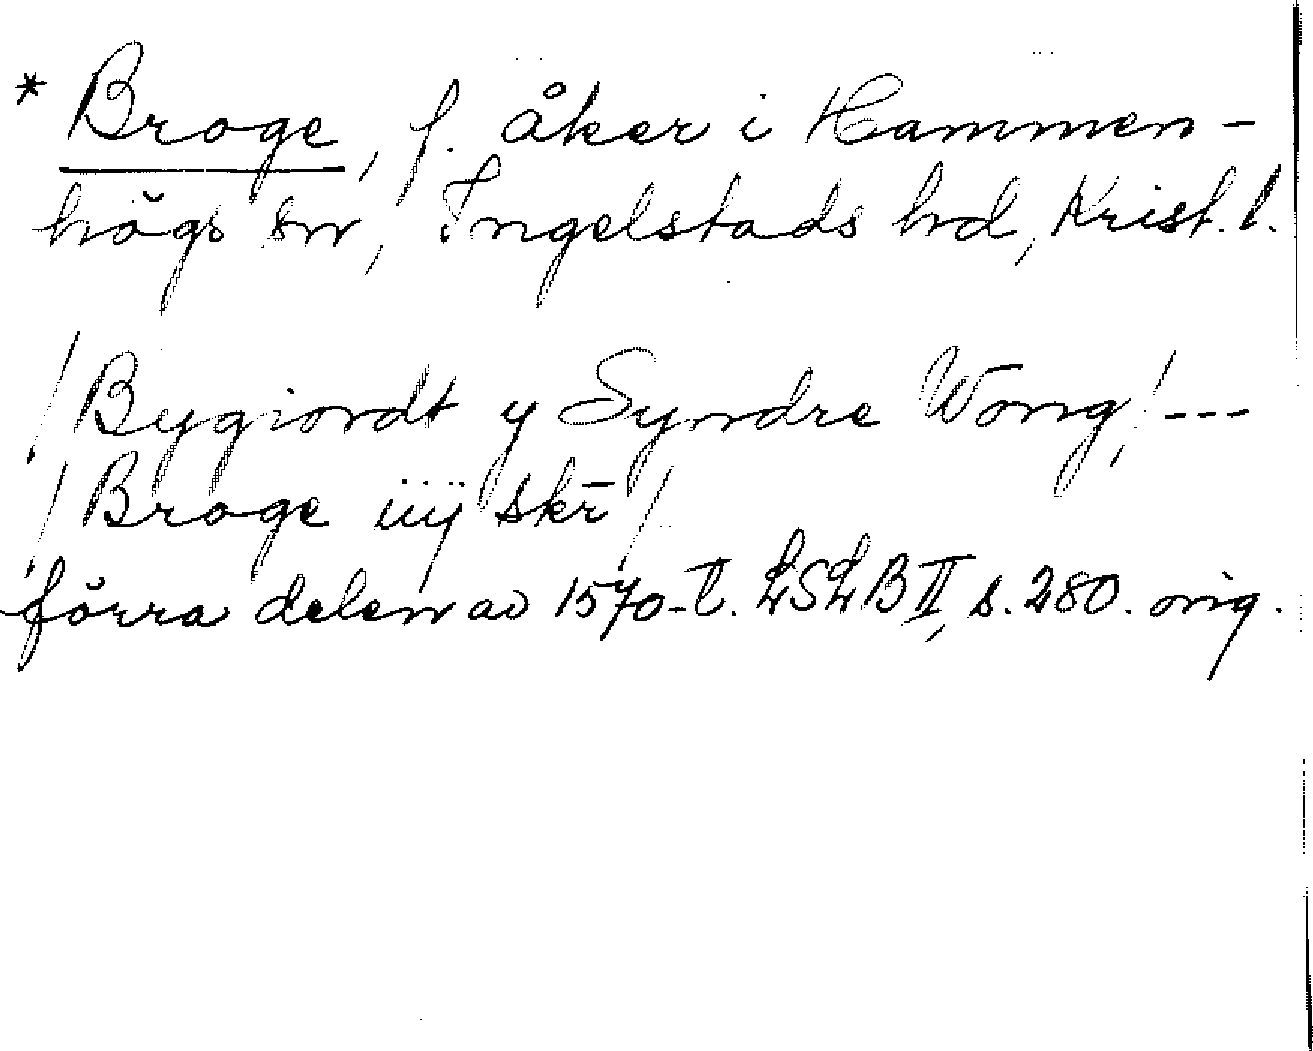 * Broge, f. åker i Hammen-
högs sn, Ingelstads hd, Krist. l.
/Bygiordt y Syndre Wong,/---
/Broge iiij skr̄/
förra delen av 1570-t. LSLB II, s. 280. orig.